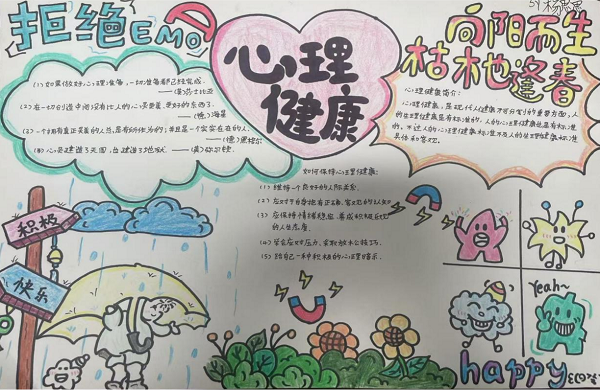 拒绝EMO
心理
健康
向阳而生
枯木逢春
(1) 如果做好心理准备，一切准备都已经完成。
——(英)莎士比亚
(2) 在一切创造中没有比人的心灵更美、更好的东西了。
——(德)海涅
(3) 一个拥有真正美貌的人总是有所作为的；并且是一个实实在在的人。
——(德)黑格尔
(4) 心灵建造了天国，也建造了地狱 ——(英)弥尔顿。
心理健康简介：
心理健康，是现代人健康不可分割的重要方面，人
的生理健康是有标准的，人的心理健康也是有标准
的。不过人的心理健康标准不及人的生理健康标准
具体和客观。
如何保持心理健康：
(1) 维持一个良好的人际关系。
(2) 应对于自身抱有正确、客观的认知
(3) 应保持情绪稳定，养成积极的
的人生态度。
(4) 学会应对压力，采取放松技巧。
(5) 给自己一种积极的心理暗示。
积极
快乐
Yeah~
happy